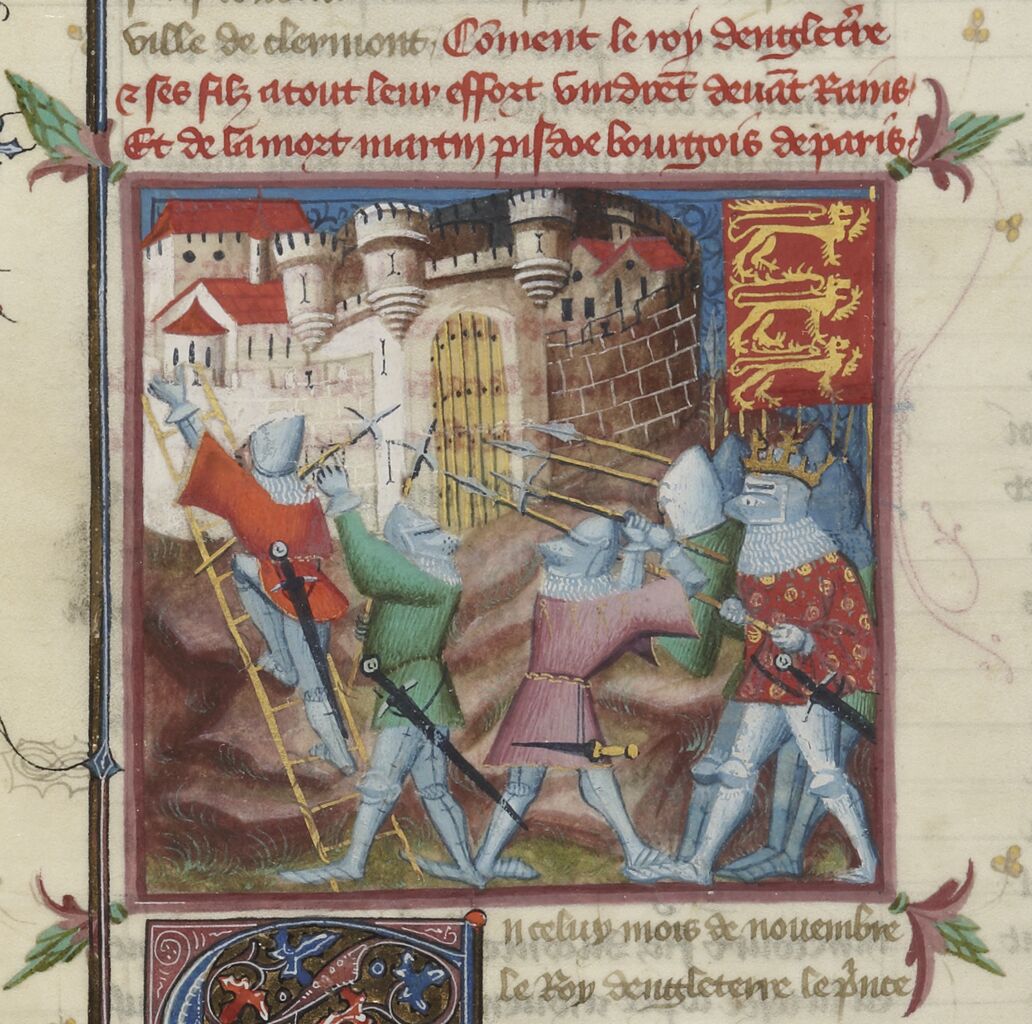 ville de clermont, Coment le roy dengletre
& ses filz atout leur effort vindret devat Rains
Et de la mort martin pisdoe bourgois de paris
n celuy mois de novembre
le Roy dengleterre le pince